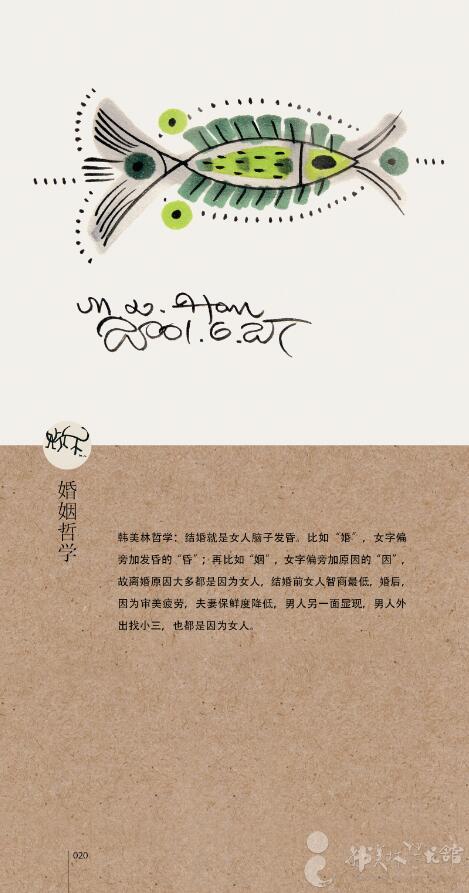 M.L.Han
2001.6.27
婚姻哲学
韩美林哲学：结婚就是女人脑子发昏。比如“婚”，女字偏
旁加发昏的“昏”；再比如“姻”，女字偏旁加原因的“因”，
故离婚原因大多都是因为女人，结婚前女人智商最低，婚后，
因为审美疲劳，夫妻保鲜度降低，男人另一面显现，男人外
出找小三，也都是因为女人。
020
韩美林艺术館